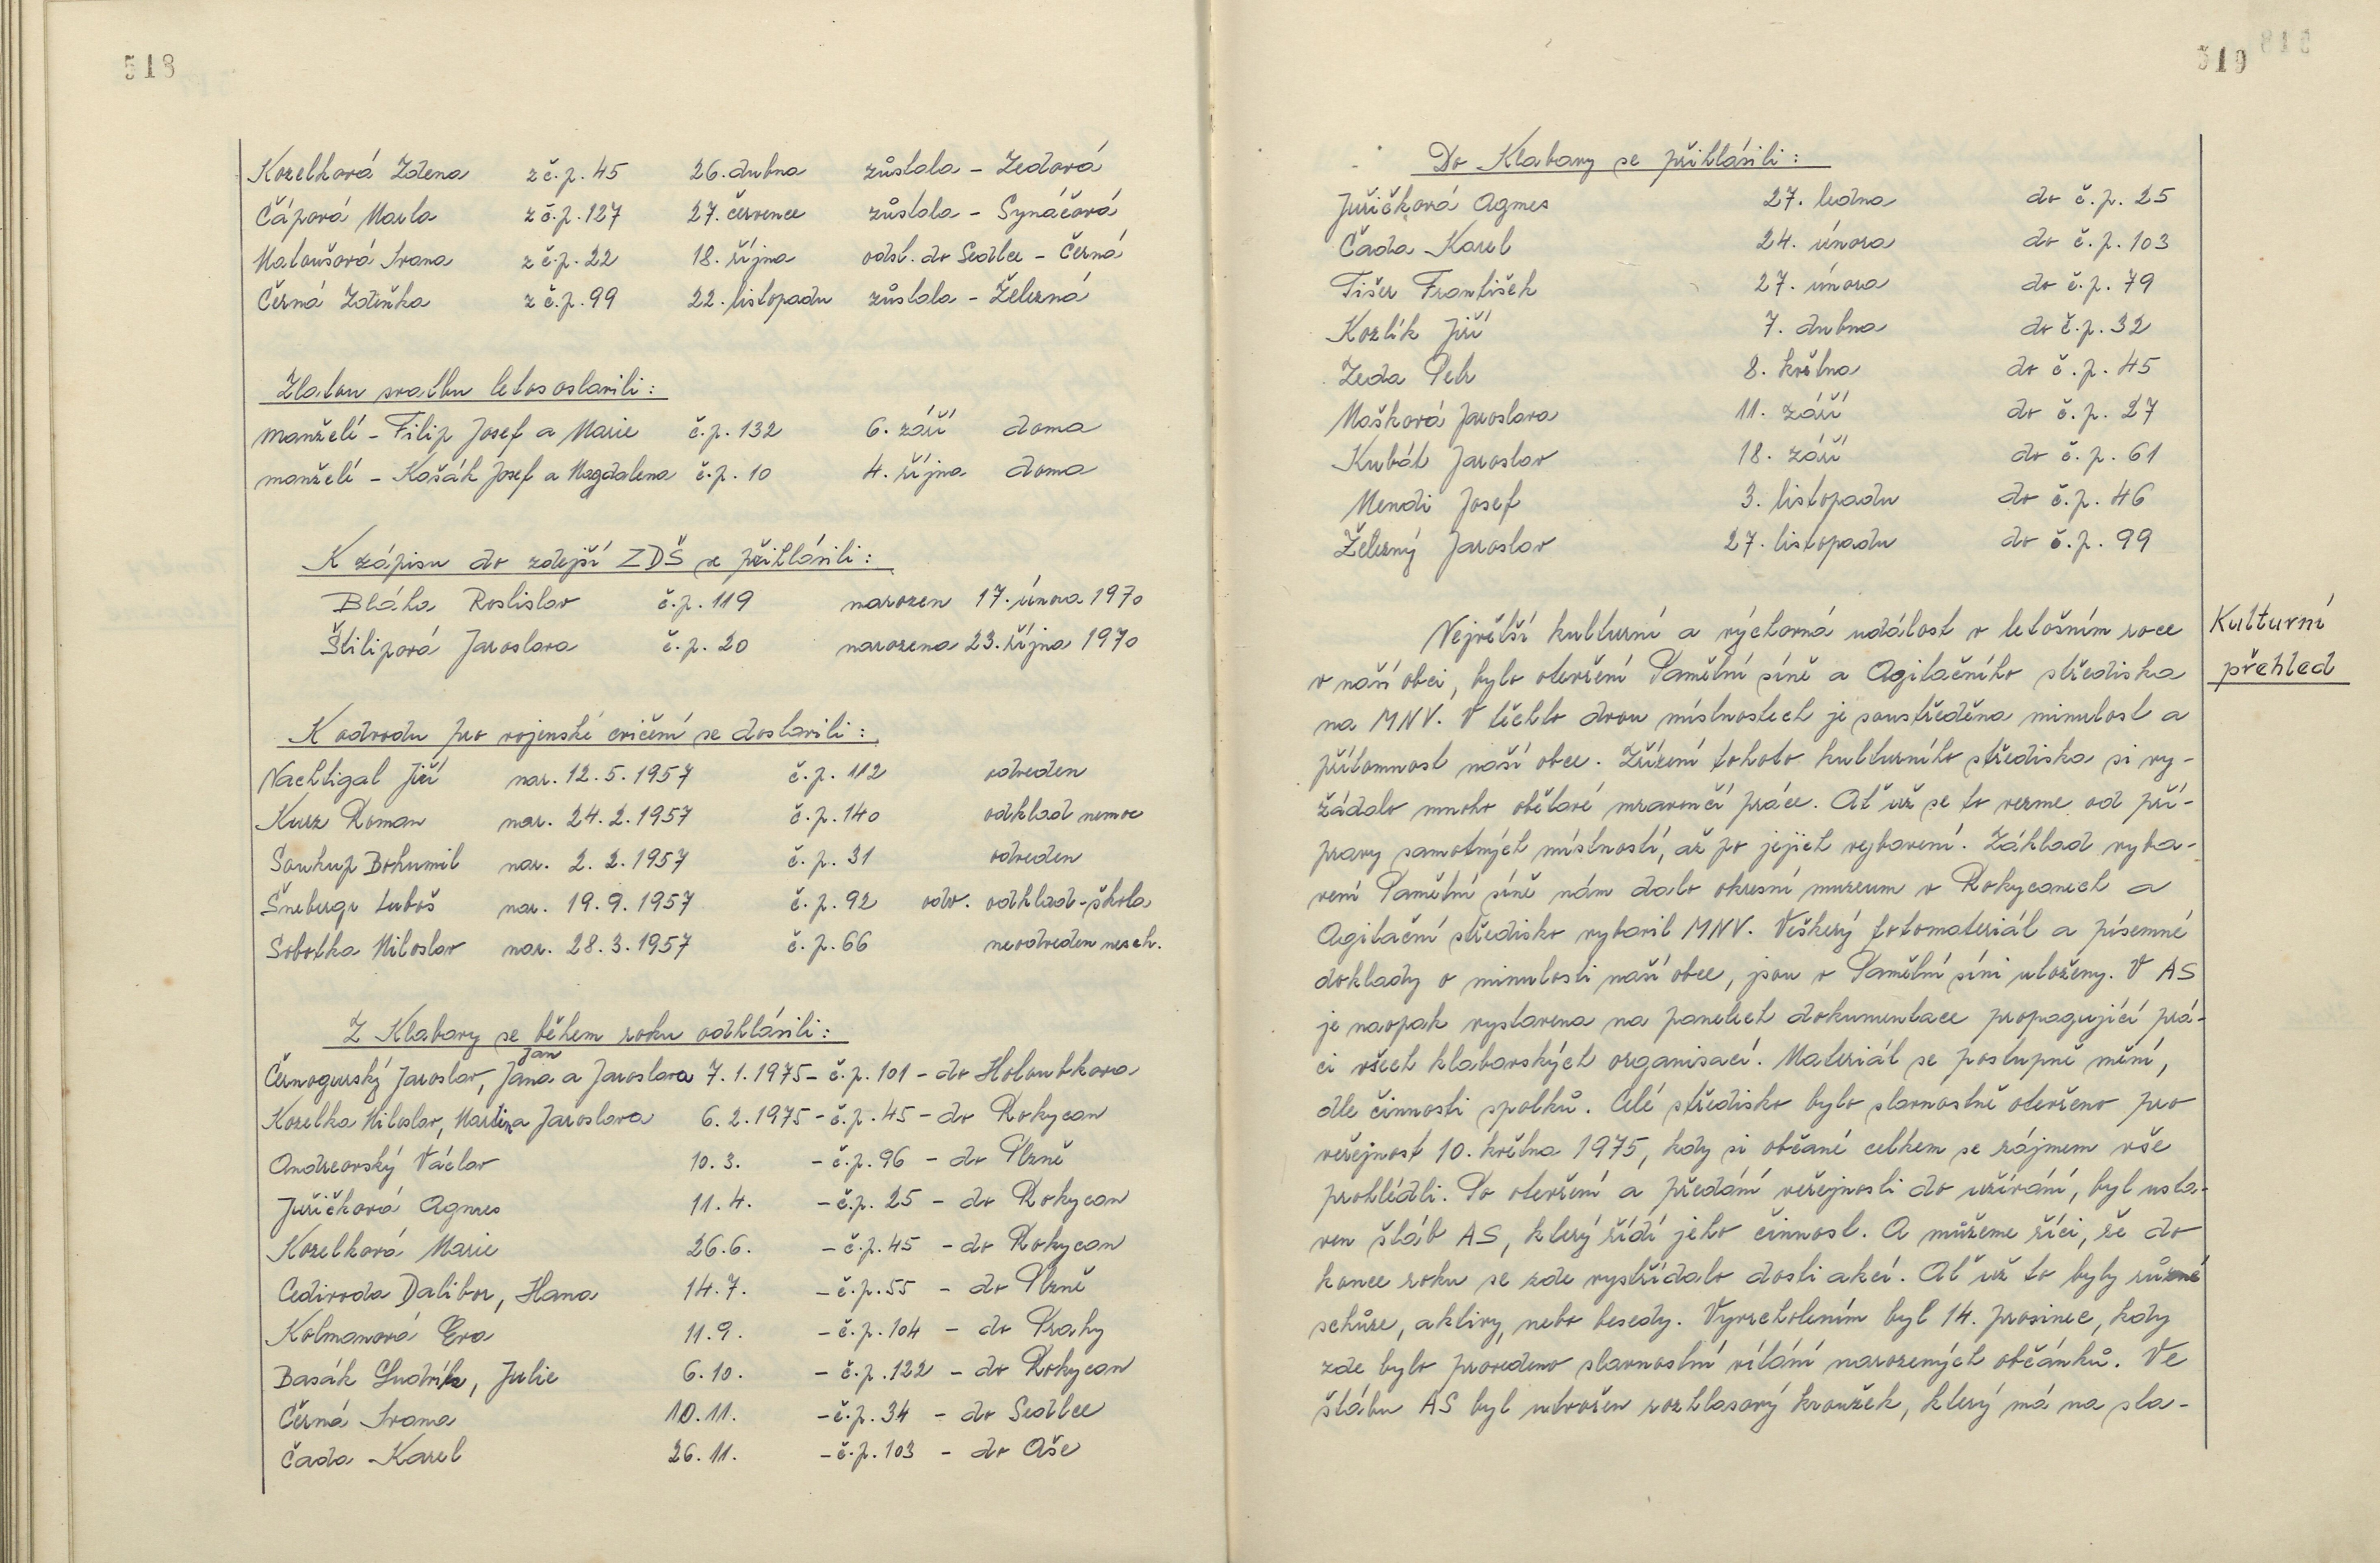 518
Kozelková Zdena z č.p. 45 26. dubna zůstala - Zedová
Čápová Marta z č.p. 127 27. července zůstala - Synáčová
Matoušová Ivana z č.p. 22 18. října odst. do Sedlce - Černá
Černá Zdeňka z č.p. 99 22. listopadu zůstala - Železná
Zlatou svatbu letos oslavili:
manželé - Filip Josef a Marie č.p. 132 6. září doma
manželé - Kašák Josef a Magdalena č.p. 10 4. října doma
K zápisu do zdejší ZDŠ se přihlásili:
Bláha Rostislav č.p. 119 narozen 17. února 1970
Štilipová Jaroslava č.p. 20 narozena 23. října 1970
K odvodu pro vojenské cvičení se dostavili:
Nachtigal Jiří nar. 12.5.1957 č.p. 112 odveden
Kurz Roman nar. 24.2.1957 č.p. 140 odklad nemoc
Soukup Bohumil nar. 2.2.1957 č.p. 31 odveden
Šnebergr Luboš nar. 19.9.1957 č.p. 92 odv. odklad-škola
Sobotka Miloslav nar. 28.3.1957 č.p. 66 neodveden nesch.
Z Klabavy se během roku odhlásili:
Jan
Černogurský Jaroslav, Jana a Jaroslava 7.1.1975 - č.p. 101 - do Holoubkova
Kozelka Miloslav, Martina Jaroslava 6.2.1975 - č.p. 45 - do Rokycan
Andreovský Václav 10.3. - č.p. 96 - do Plzně
Juřičková Agnes 11.4. - č.p. 25 - do Rokycan
Kozelková Marie 26.6. - č.p. 45 - do Rokycan
Cedivoda Dalibor, Hana 14.7. - č.p. 55 - do Plzně
Kolmanová Eva 11.9. - č.p. 104 - do Prahy
Basák Ludvík, Julie 6.10. - č.p. 122 - do Rokycan
Černá Ivana 10.11. - č.p. 34 - do Sedlce
Čada Karel 26.11. - č.p. 103 - do Aše
519
Do Klabavy se přihlásili:
Juřičková Agnes 27. ledna do č.p. 25
Čada Karel 24. února do č.p. 103
Fišer František 27. února do č.p. 79
Kozlík Jiří 7. dubna do č.p. 32
Zeda Petr 8. května do č.p. 45
Mašková Jaroslava 11. září do č.p. 27
Kubát Jaroslav 18. září do č.p. 61
Mendi Josef 3. listopadu do č.p. 46
Železný Jaroslav 27. listopadu do č.p. 99
Kulturní
přehled
Největší kulturní a výchovná událost v letošním roce
v naší obci, bylo otevření Pamětní síně a Agitačního střediska
na MNV. V těchto dvou místnostech je soustředěna minulost a
přítomnost naší obce. Zřízení tohoto kulturního střediska si vy-
žádalo mnoho obětavé mravenčí práce. Ať už se to vezme od pří-
pravy samotných místností, až po jejich vybavení. Základ vyba-
vení Pamětní síně nám dalo okresní muzeum v Rokycanech a
Agitační středisko vybavil MNV. Veškerý fotomateriál a písemné
doklady o minulosti naší obce, jsou v Pamětní síni uloženy. V AS
je naopak vystavena na panelech dokumentace propagující prá-
ci všech klabavských organisací. Materiál se postupně mění,
dle činnosti spolků. Celé středisko bylo slavnostně otevřeno pro
veřejnost 10. května 1975, kdy si občané celkem se zájmem vše
prohlédli. Po otevření a předání veřejnosti do užívání, byl usta-
ven štáb AS, který řídí jeho činnost. A můžeme říci, že do
konce roku se zde vystřídalo dosti akcí. Ať už to byly různé
schůze, aktivy, nebo besedy. Vyvrcholením byl 14. prosinec, kdy
zde bylo provedeno slavnostní vítání narozených občánků. Ve
štábu AS byl utvořen rozhlasový kroužek, který má na sta-